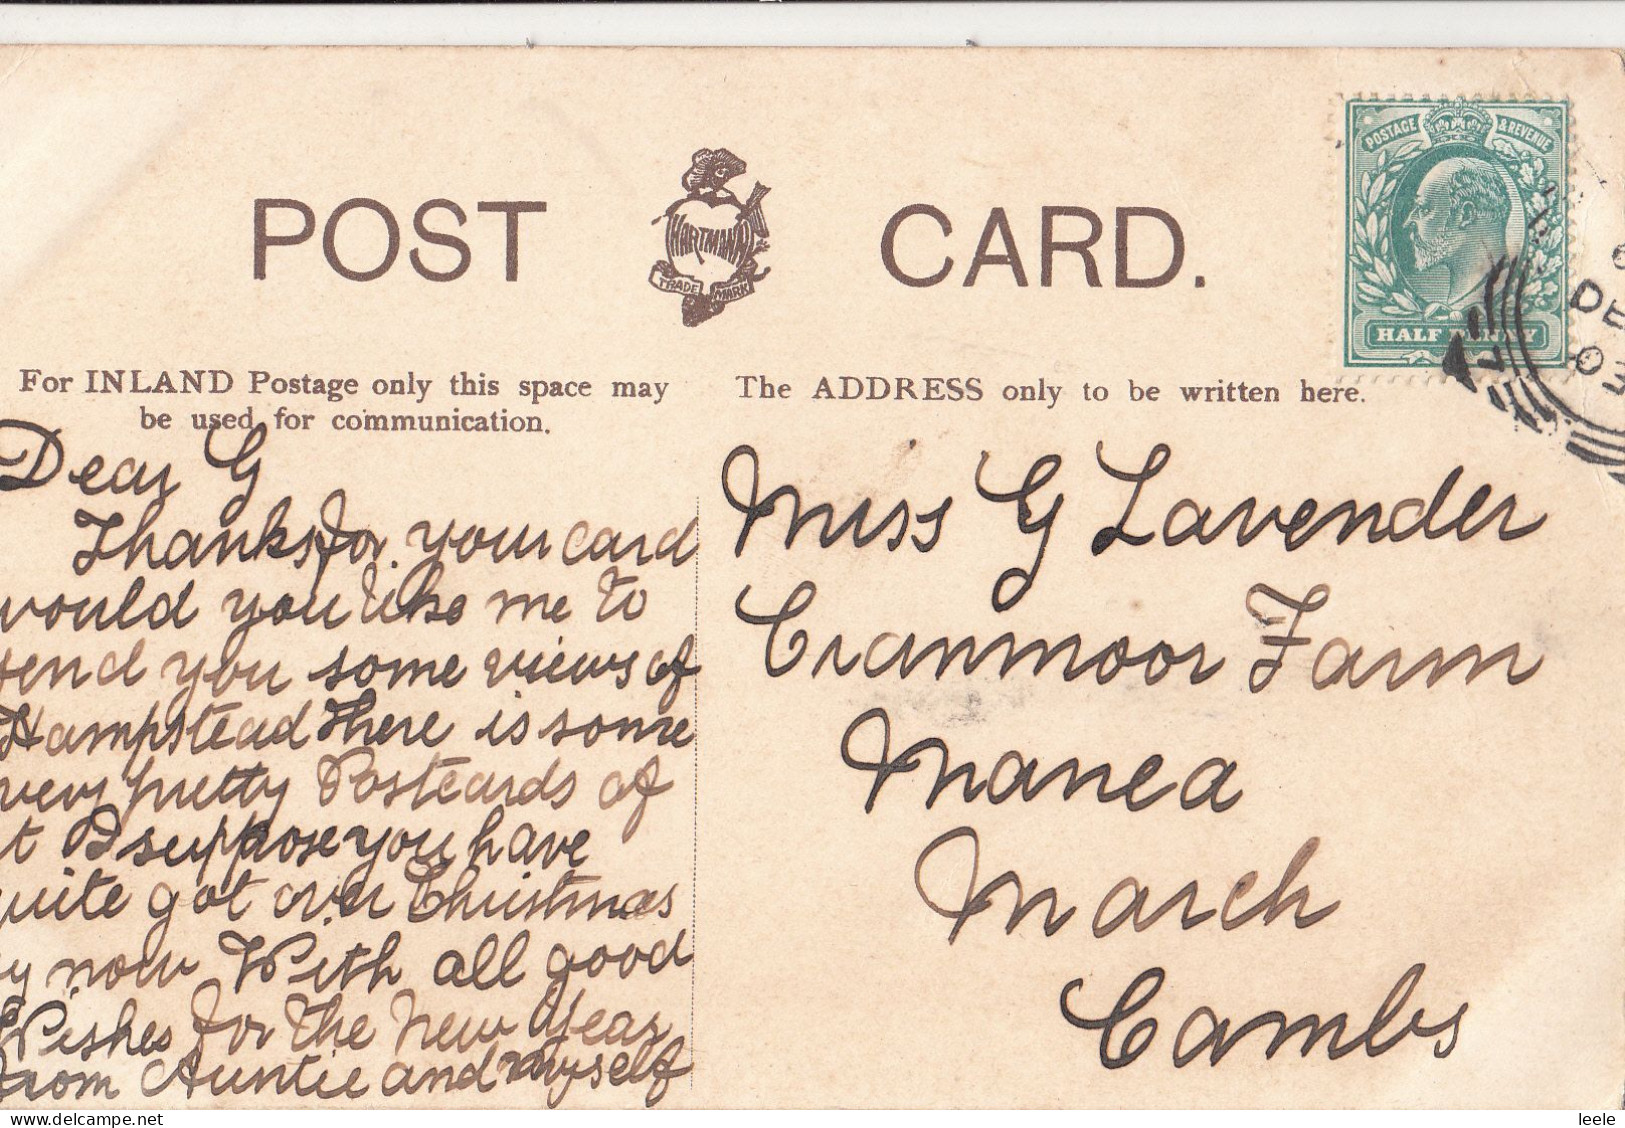 POST CARD.
HARTMANN
TRADE MARK
POSTAGE & REVENUE
HALF PENNY
DE
03
For INLAND Postage only this space may
be used for communication.
The ADDRESS only to be written here.
Dear G
Thanks for your card
would you like me to
send you some views of
Hampstead There is some
very pretty Postcards of
it I suppose you have
quite got over Christmas
by now With all good
Wishes for the New Year
From Auntie and myself
Miss G Lavender
Cranmoor Farm
Manea
March
Cambs
delcampe.net
leele